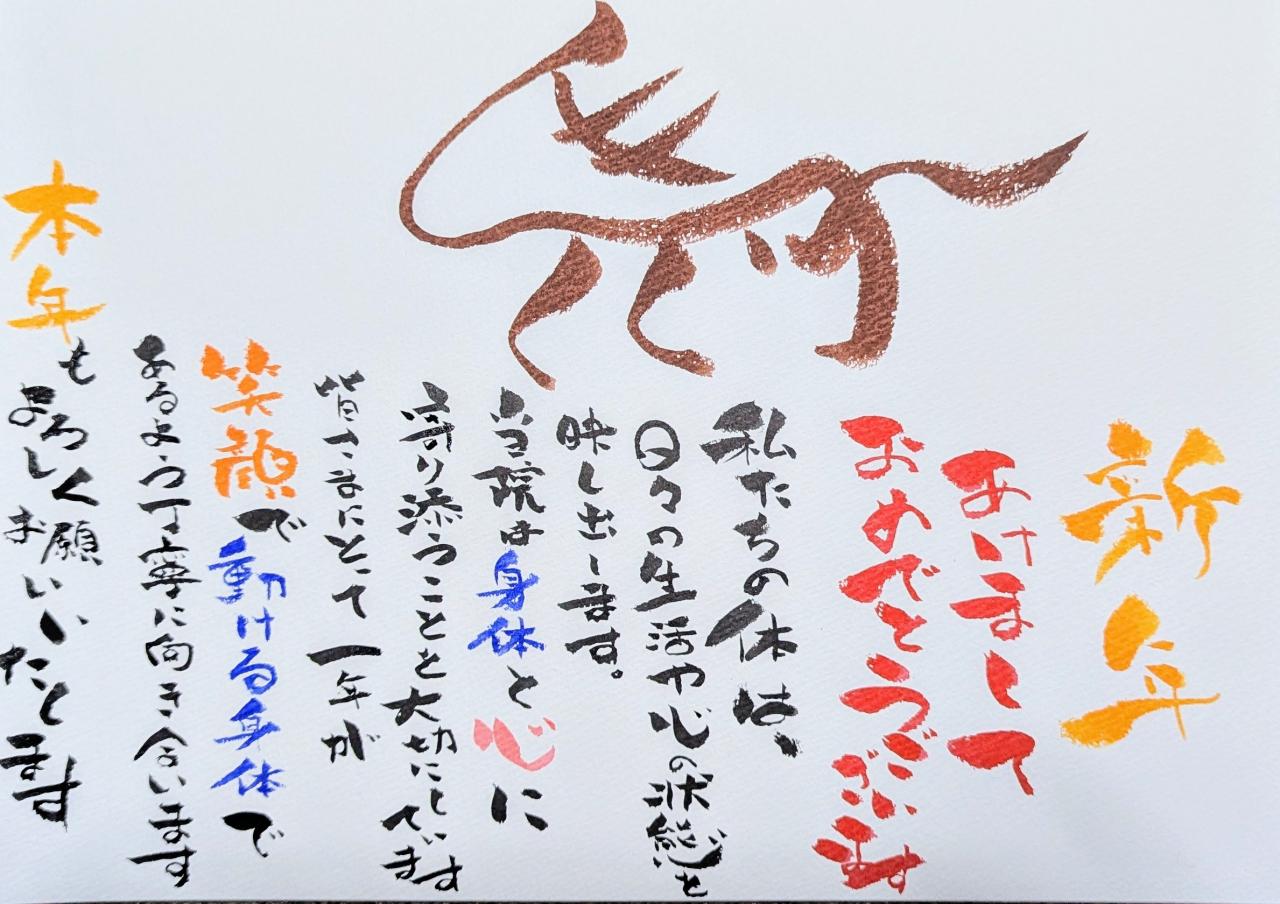 新年
あけまして
おめでとうございます
私たちの体は、
日々の生活や心の状態を
映し出します。
当院は身体と心に
寄り添うことを大切にしています
皆さまにとって一年が
笑顔で動ける身体で
あるよう丁寧に向き合います
本年もよろしくお願いいたします